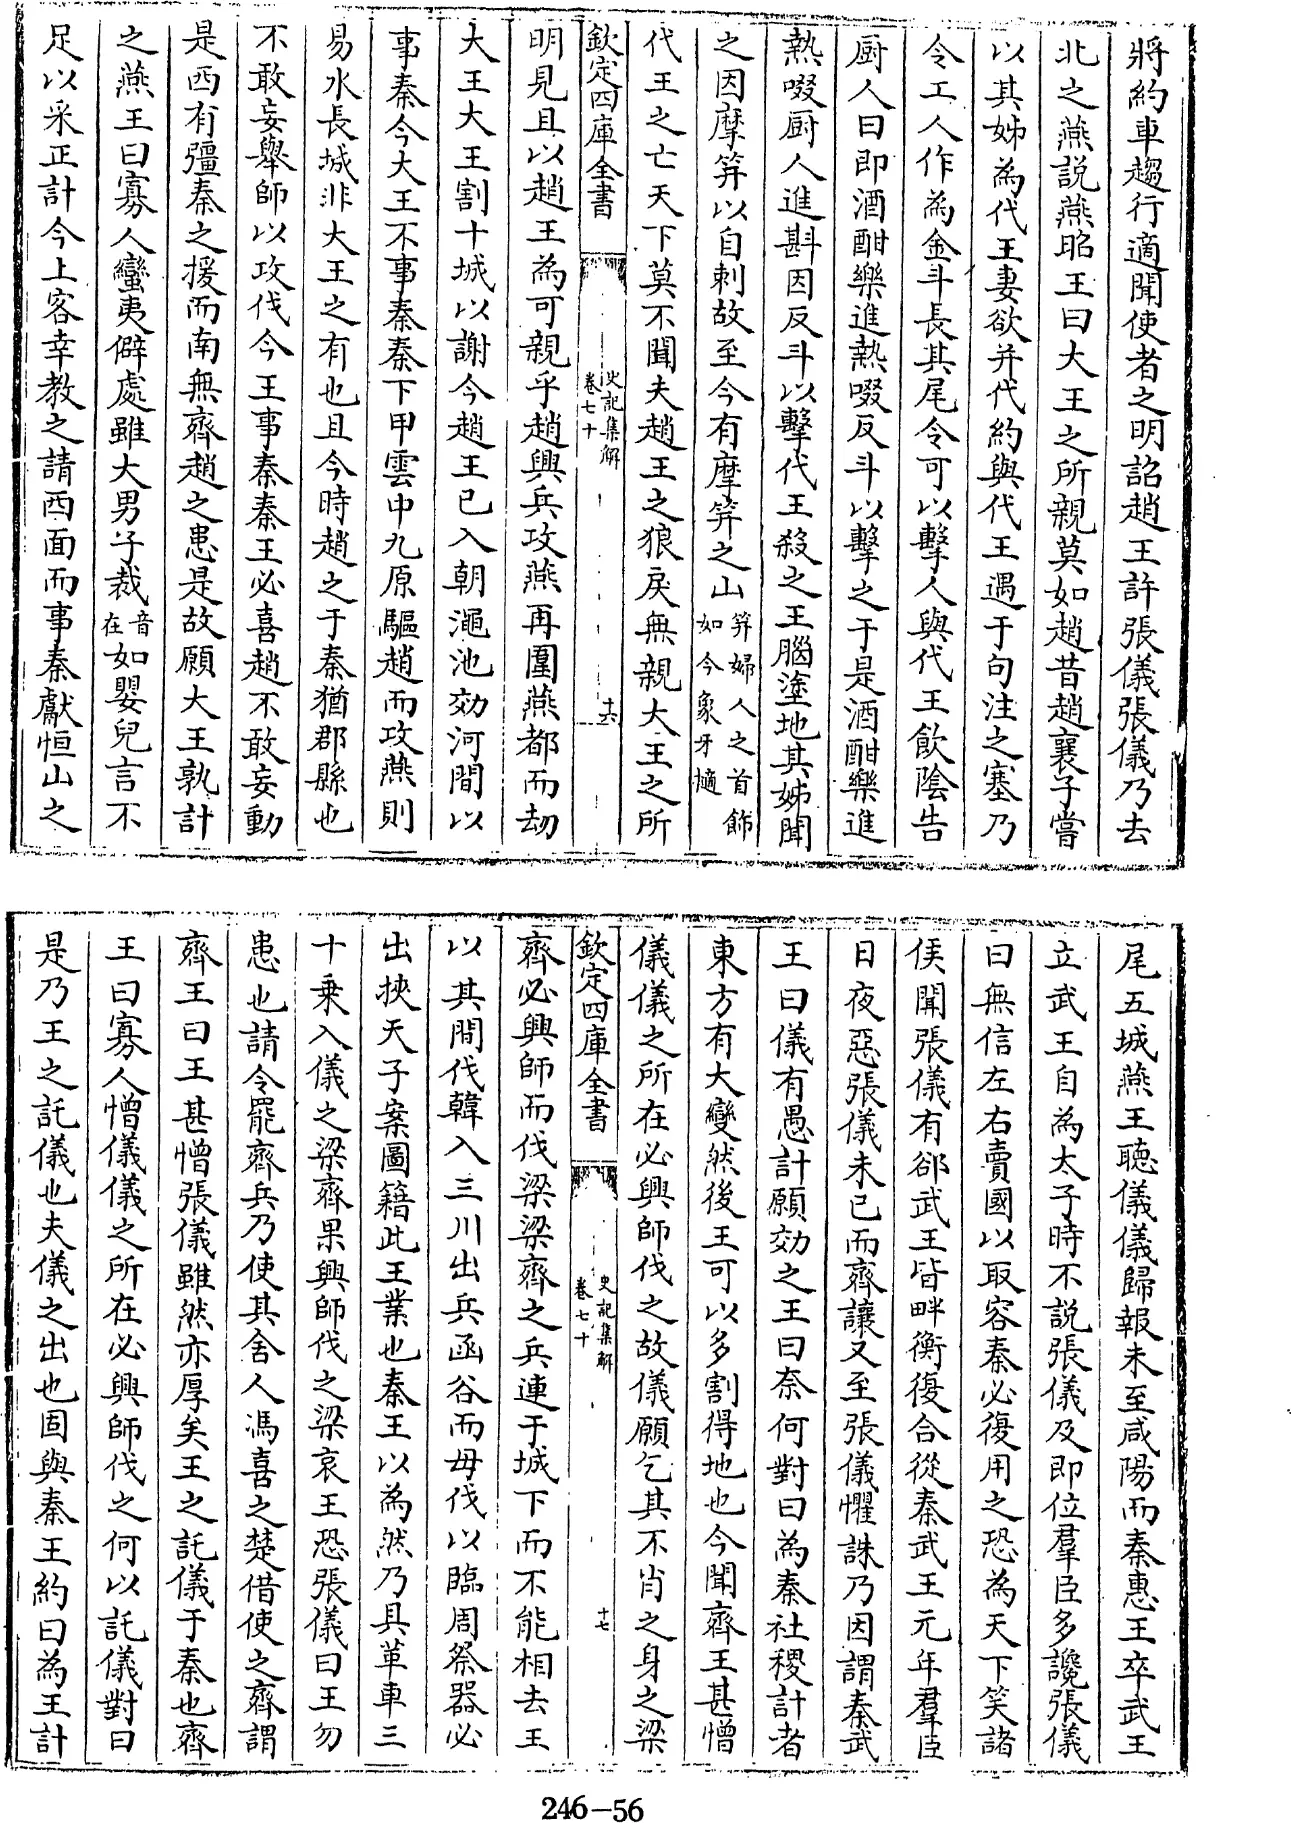 將約車趨行適聞使者之明詔趙王許張儀張儀乃去
北之燕説燕昭王曰大王之所親莫如趙昔趙襄子嘗
以其姊為代王妻欲并代約與代王遇于句注之塞乃
令工人作為金斗長其尾令可以擊人與代王飲陰告
厨人曰即酒酣樂進熱啜反斗以擊之于是酒酣樂進
熱啜厨人進斟因反斗以擊代王殺之王腦塗地其姊聞
之因摩笄以自刺故至今有摩笄之山
笄婦人之首飾
如今象牙擿
代王之亡天下莫不聞夫趙王之狼戾無親大王之所
欽定四庫全書
史記集解
卷七十
十六
明見且以趙王為可親乎趙興兵攻燕再圍燕都而劫
大王大王割十城以謝今趙王已入朝澠池効河間以
事秦今大王不事秦秦下甲雲中九原驅趙而攻燕則
易水長城非大王之有也且今時趙之于秦猶郡縣也
不敢妄舉師以攻伐今王事秦秦王必喜趙不敢妄動
是西有彊秦之援而南無齊趙之患是故願大王孰計
之燕王曰寡人蠻夷僻處雖大男子裁
音
在
如嬰兒言不
足以采正計今上客幸教之請西面而事秦獻恒山之
尾五城燕王聽儀儀歸報未至咸陽而秦惠王卒武王
立武王自為太子時不説張儀及即位羣臣多讒張儀
曰無信左右賣國以取容秦必復用之恐為天下笑諸
侯聞張儀有郤武王皆畔衡復合從秦武王元年羣臣
日夜惡張儀未已而齊讓又至張儀懼誅乃因謂秦武
王曰儀有愚計願効之王曰奈何對曰為秦社稷計者
東方有大變然後王可以多割得地也今聞齊王甚憎
儀儀之所在必興師伐之故儀願乞其不肖之身之梁
欽定四庫全書
史記集解
卷七十
十七
齊必興師而伐梁梁齊之兵連于城下而不能相去王
以其間伐韓入三川出兵函谷而毋伐以臨周祭器必
出挾天子案圖籍此王業也秦王以為然乃具革車三
十乘入儀之梁齊果興師伐之梁哀王恐張儀曰王勿
患也請令罷齊兵乃使其舍人馮喜之楚借使之齊謂
齊王曰王甚憎張儀雖然亦厚矣王之託儀于秦也齊
王曰寡人憎儀儀之所在必興師伐之何以託儀對曰
是乃王之託儀也夫儀之出也固與秦王約曰為王計
246-56